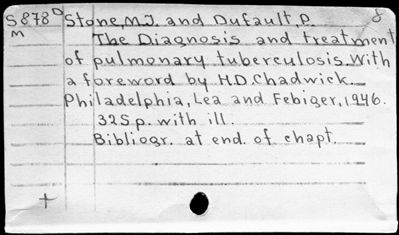 S878D Stone, M.J. and Dufault, P.
M
The Diagnosis and treatment
of pulmonary tuberculosis. With
a foreword by H.D. Chadwick.
Philadelphia, Lea and Febiger, 1946.
325 p. with ill.
Bibliogr. at end. of chapt.